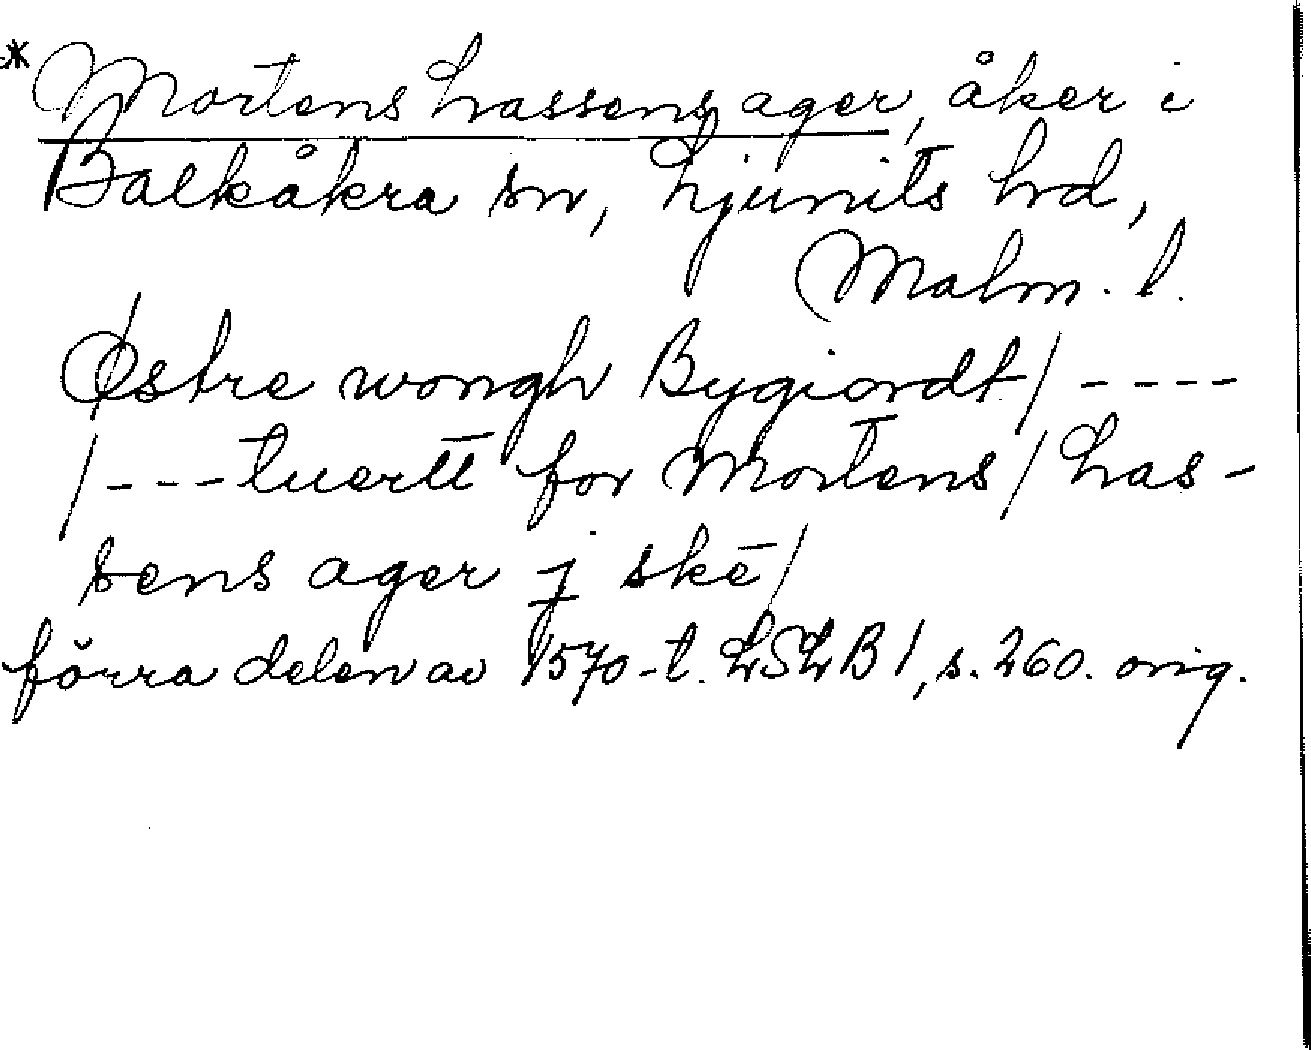 * Mortens Lassens ager, åker i
Balkåkra sn, Ljunits hd,
Malm. l.
Østre wongh Bygiordt/ ----
/---tuertt for Mortens/ Las-
sens ager j skē/
förra delen av 1570-t. LSLB 1, s. 260. orig.